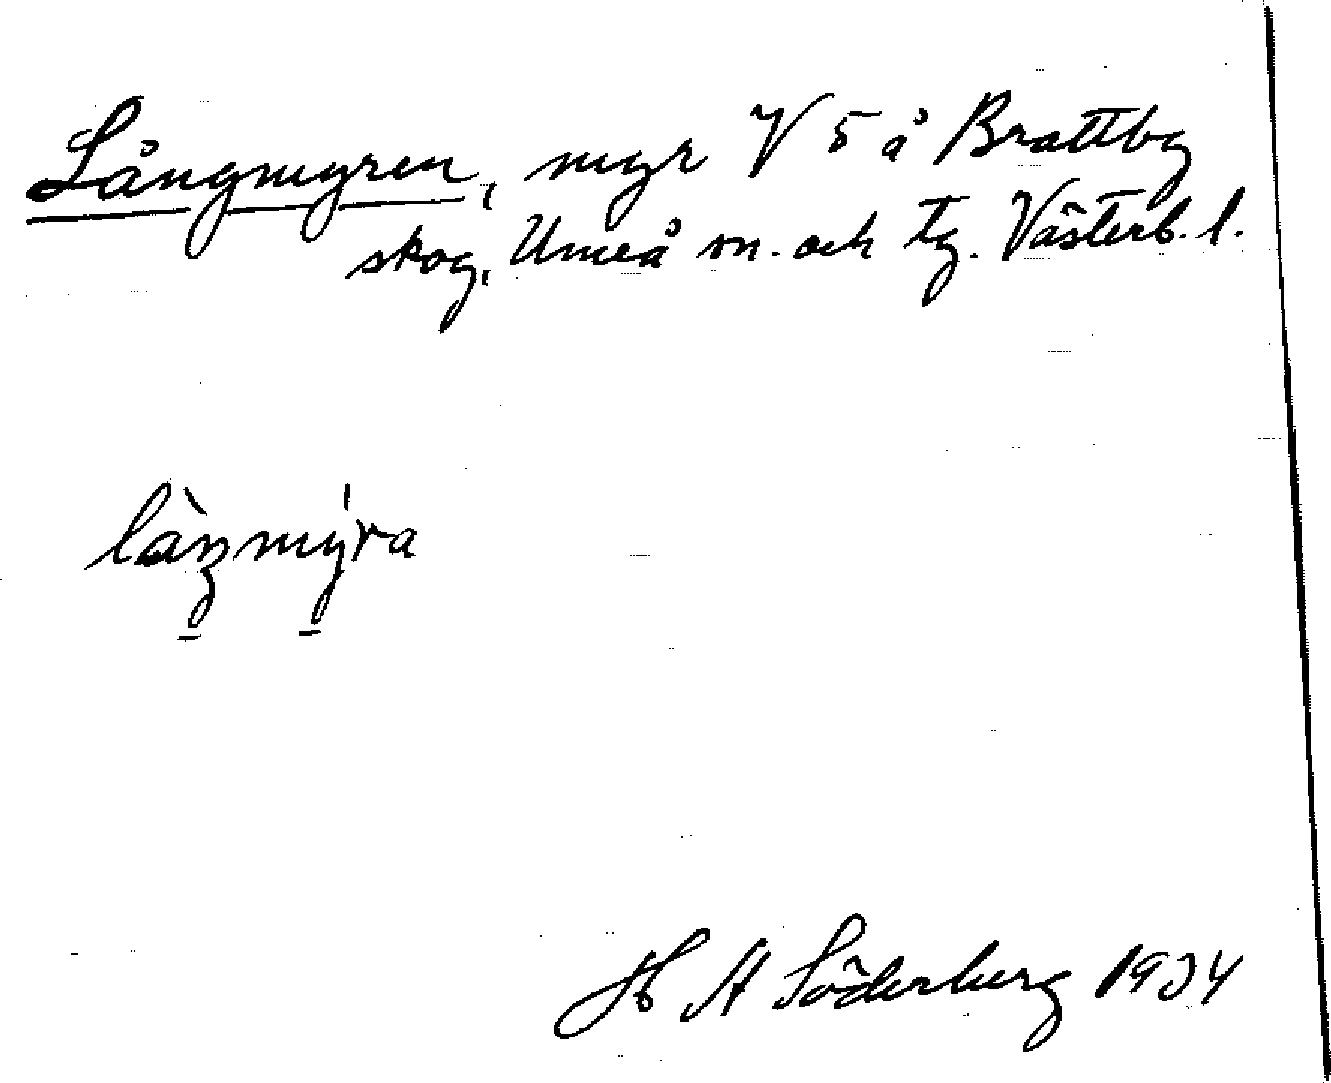 Långmyren, myr V 5 å Brattby
skog, Umeå sn. och tg. Västerb. l.
làŋmy̍ra
H A Söderberg 1934